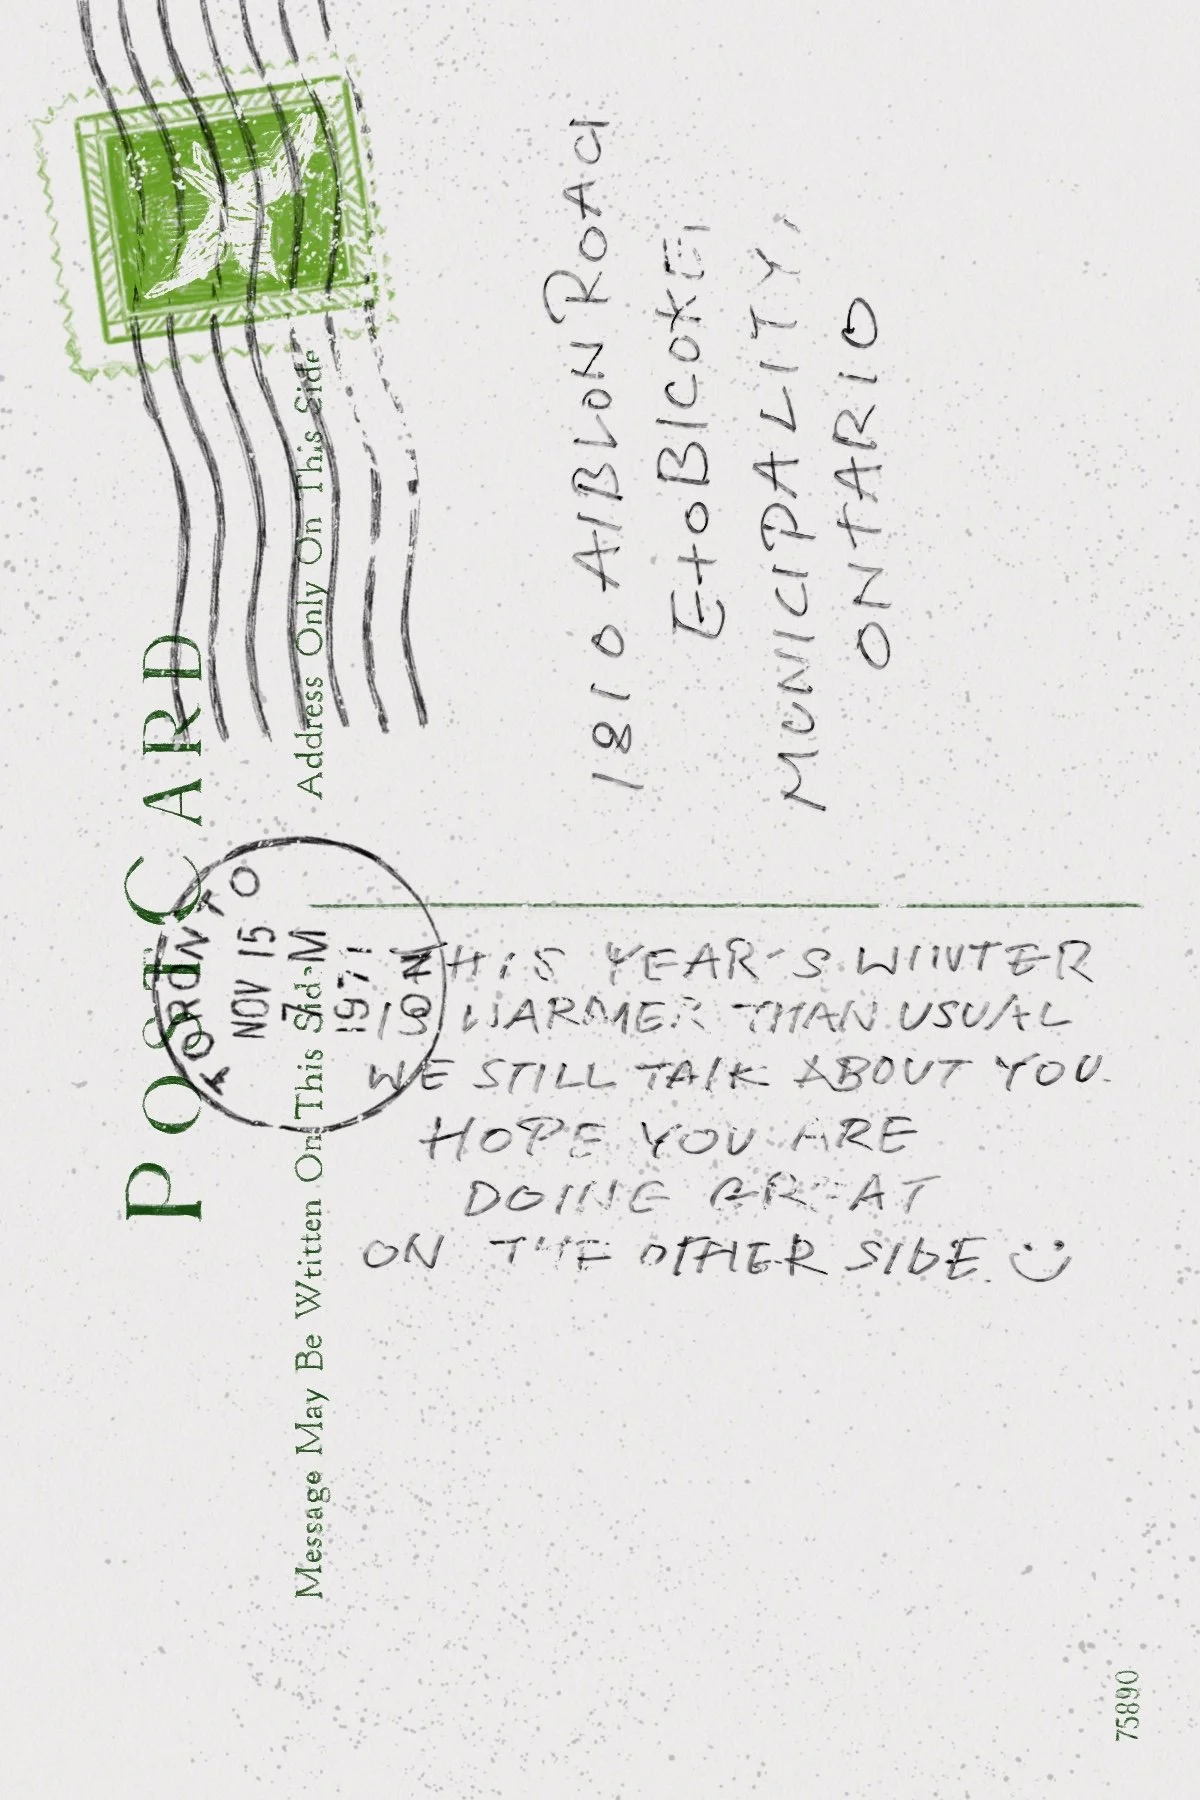 POST CARD
Message May Be Wtitten On This Side
Address Only On This Side
TORONTO
NOV 15
7 M
1971
ON
1810 AIBLON ROAd
EtoBICOKE,
MUNICIPALITY,
ONTARIO
THIS YEAR'S WINTER
IS WARMER THAN USUAL
WE STILL TALK ABOUT YOU.
HOPE YOU ARE
DOING GREAT
ON THE OTHER SIDE. :)
75890